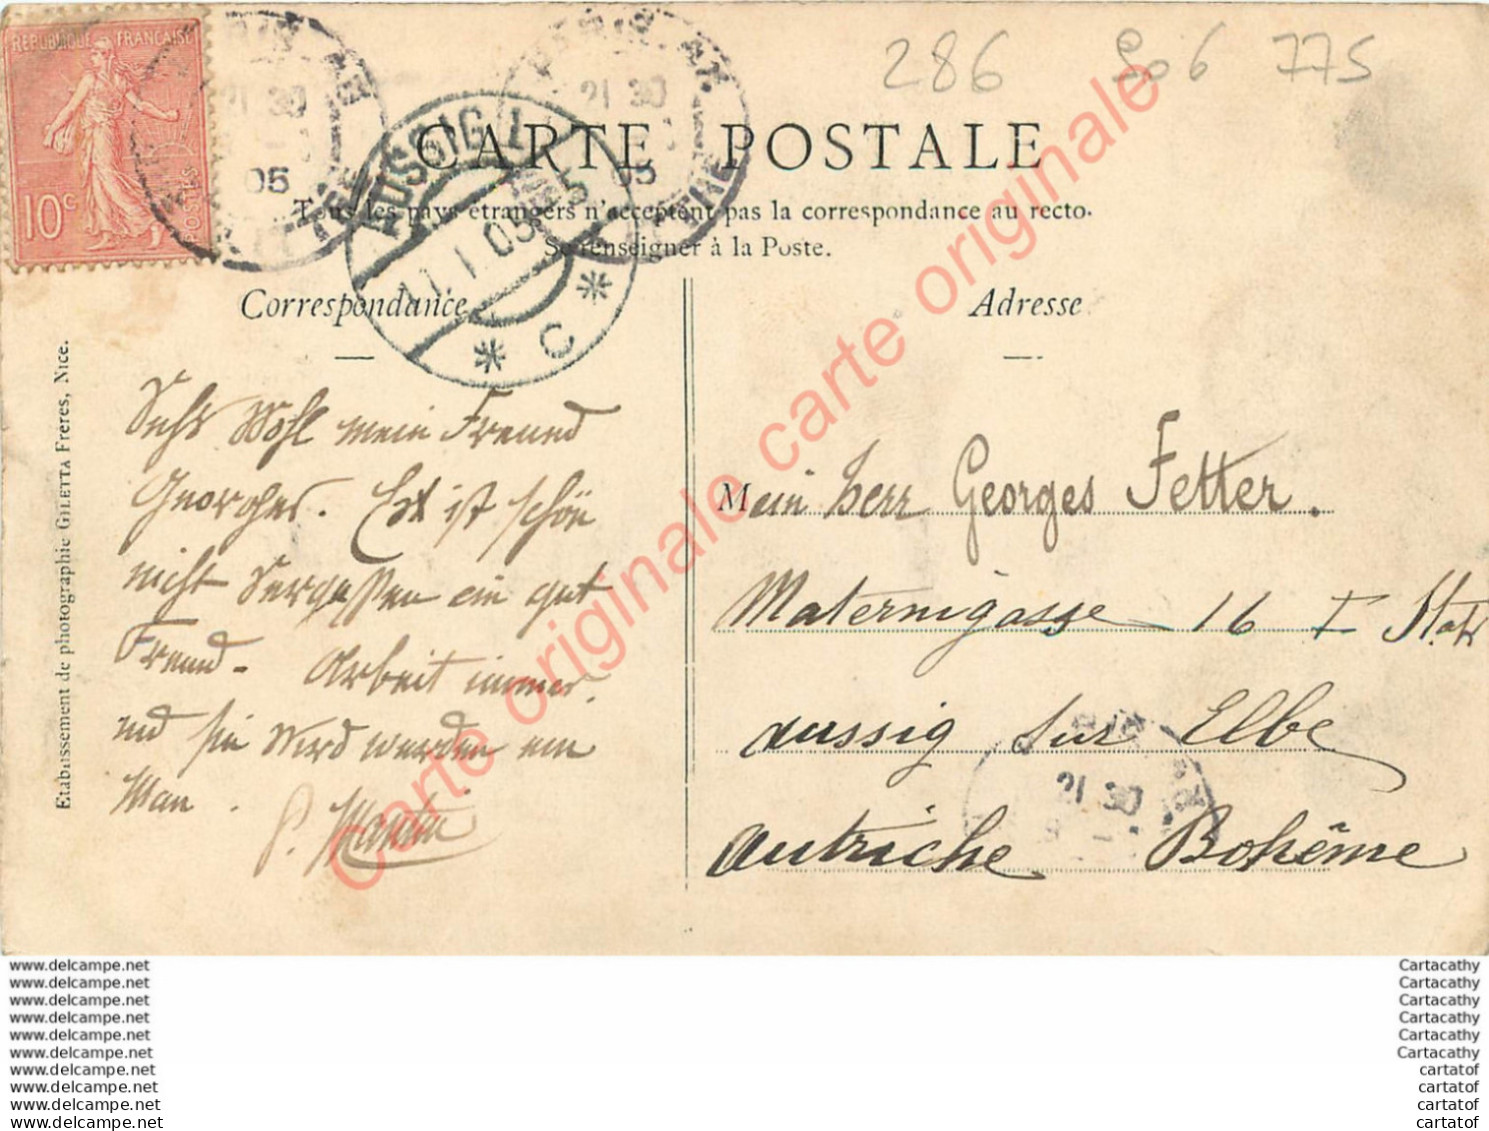 RÉPUBLIQUE FRANÇAISE
POSTES
10c
21 30
05
21 30
05
AUSSIG 1
11.1.05
* C *
286 806 775
CARTE POSTALE
Tous les pays étrangers n'acceptent pas la correspondance au recto.
Se renseigner à la Poste.
Correspondance
Adresse
Etablissement de photographie GILETTA Freres, Nice.
Sehr Wohl mein Freund
Georges. Est ist schön
nicht Vergessen ein gut
Freund - Arbeit immer.
und sie wird werden ein
Man .
P. Martin
Mein herr Georges Fetter.
Maternigasse 16 I Stok
aussig sur Elbe
autriche Bohême
21 30
carte originale carte originale carte originale
www.delcampe.net
www.delcampe.net
www.delcampe.net
www.delcampe.net
www.delcampe.net
www.delcampe.net
www.delcampe.net
www.delcampe.net
www.delcampe.net
www.delcampe.net
Cartacathy
Cartacathy
Cartacathy
Cartacathy
Cartacathy
Cartacathy
cartatof
cartatof
cartatof
cartatof